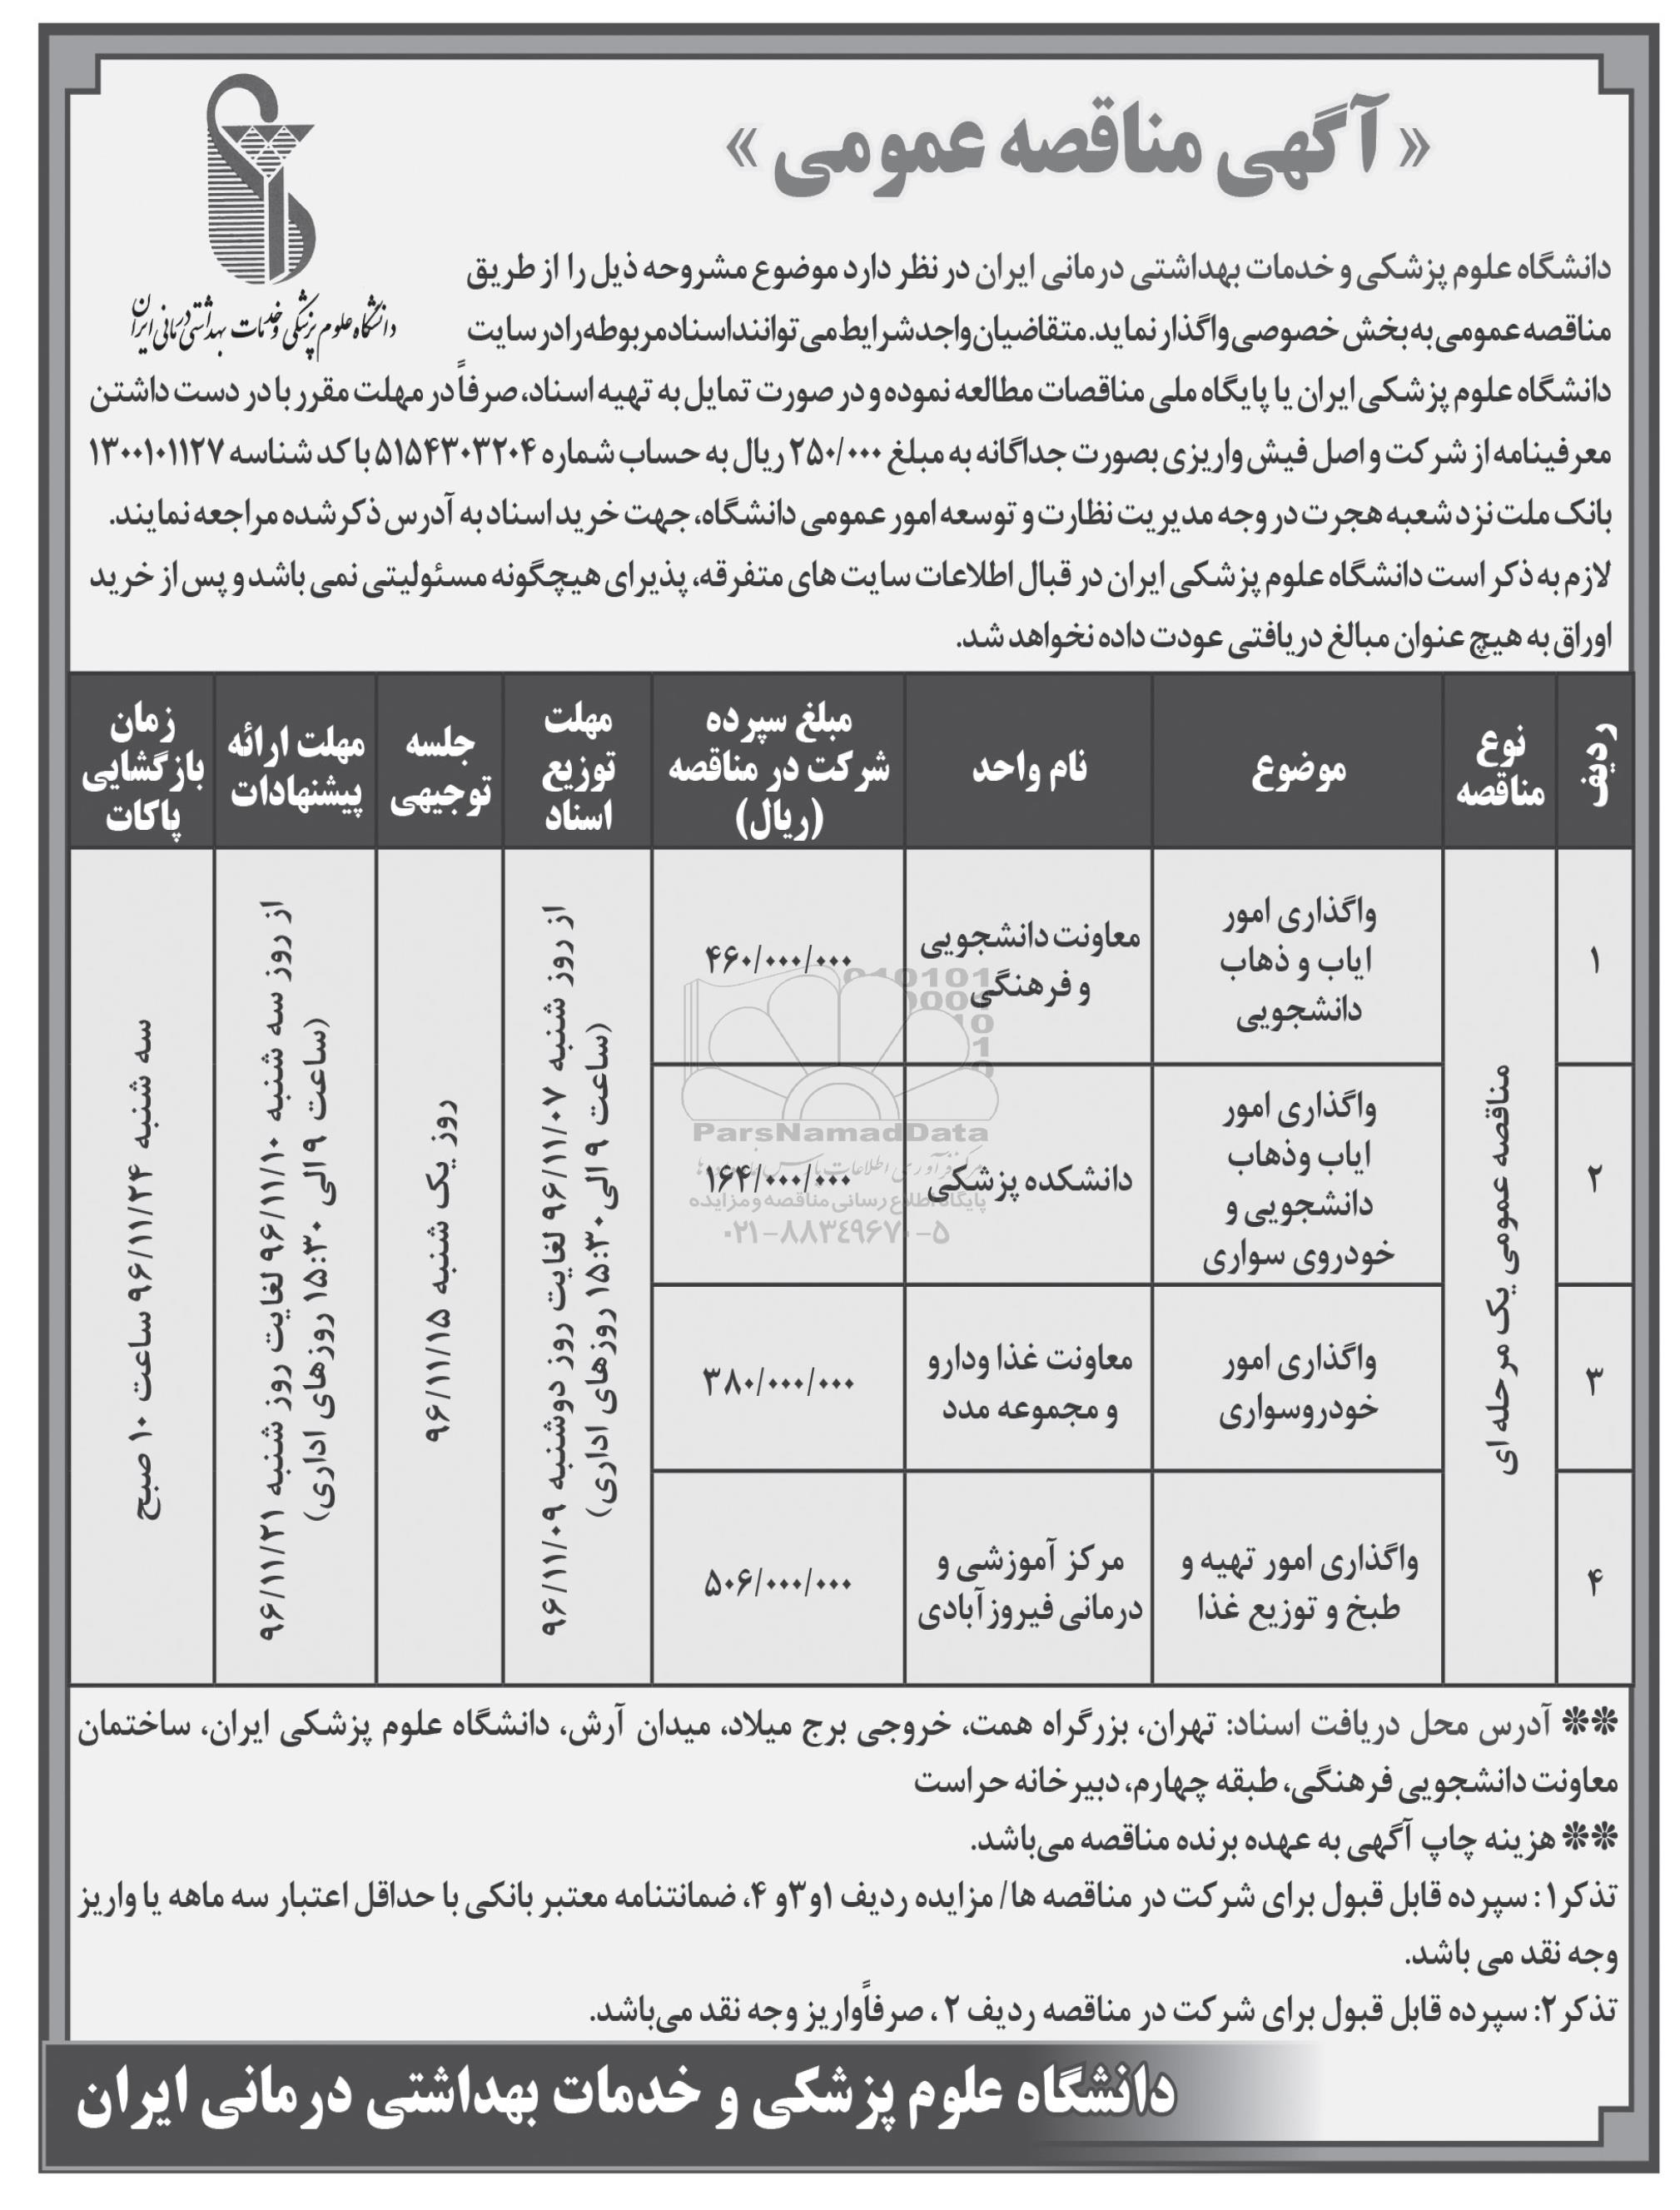 « آگهی مناقصه عمومی »
دانشگاه علوم پزشکی و خدمات بهداشتی درمانی ایران
دانشگاه علوم پزشکی و خدمات بهداشتی درمانی ایران در نظر دارد موضوع مشروحه ذیل را از طریق
مناقصه عمومی به بخش خصوصی واگذار نماید. متقاضیان واجد شرایط می توانند اسناد مربوطه را در سایت
دانشگاه علوم پزشکی ایران یا پایگاه ملی مناقصات مطالعه نموده و در صورت تمایل به تهیه اسناد، صرفاً در مهلت مقرر با در دست داشتن
معرفینامه از شرکت و اصل فیش واریزی بصورت جداگانه به مبلغ ۲۵۰/۰۰۰ ریال به حساب شماره ۵۱۵۴۳۰۳۲۰۴ با کد شناسه ۱۳۰۰۱۰۱۱۲۷
بانک ملت نزد شعبه هجرت در وجه مدیریت نظارت و توسعه امور عمومی دانشگاه، جهت خرید اسناد به آدرس ذکر شده مراجعه نمایند.
لازم به ذکر است دانشگاه علوم پزشکی ایران در قبال اطلاعات سایت های متفرقه، پذیرای هیچگونه مسئولیتی نمی باشد و پس از خرید
اوراق به هیچ عنوان مبالغ دریافتی عودت داده نخواهد شد.
ردیف
نوع
مناقصه
موضوع
نام واحد
مبلغ سپرده
شرکت در مناقصه
(ریال)
مهلت
توزیع
اسناد
جلسه
توجیهی
مهلت ارائه
پیشنهادات
زمان
بازگشایی
پاکات
۱
مناقصه عمومی یک مرحله ای
واگذاری امور
ایاب و ذهاب
دانشجویی
معاونت دانشجویی
و فرهنگی
۴۶۰/۰۰۰/۰۰۰
از روز شنبه ۹۶/۱۱/۰۷ لغایت روز دوشنبه ۹۶/۱۱/۰۹
(ساعت ۹ الی ۱۵:۳۰ روزهای اداری)
روز یک شنبه ۹۶/۱۱/۱۵
از روز سه شنبه ۹۶/۱۱/۱۰ لغایت روز شنبه ۹۶/۱۱/۲۱
(ساعت ۹ الی ۱۵:۳۰ روزهای اداری)
سه شنبه ۹۶/۱۱/۲۴ ساعت ۱۰ صبح
۲
واگذاری امور
ایاب وذهاب
دانشجویی و
خودروی سواری
دانشکده پزشکی
۱۶۴/۰۰۰/۰۰۰
۳
واگذاری امور
خودروسواری
معاونت غذا ودارو
و مجموعه مدد
۳۸۰/۰۰۰/۰۰۰
۴
واگذاری امور تهیه و
طبخ و توزیع غذا
مرکز آموزشی و
درمانی فیروزآبادی
۵۰۶/۰۰۰/۰۰۰
ParsNamadData
پایگاه اطلاع رسانی مناقصه و مزایده
۰۲۱-۸۸۳۴۹۶۷۰-۵
** آدرس محل دریافت اسناد: تهران، بزرگراه همت، خروجی برج میلاد، میدان آرش، دانشگاه علوم پزشکی ایران، ساختمان
معاونت دانشجویی فرهنگی، طبقه چهارم، دبیرخانه حراست
** هزینه چاپ آگهی به عهده برنده مناقصه می‌باشد.
تذکر۱: سپرده قابل قبول برای شرکت در مناقصه ها/ مزایده ردیف ۱و۳و ۴، ضمانتنامه معتبر بانکی با حداقل اعتبار سه ماهه یا واریز
وجه نقد می باشد.
تذکر۲: سپرده قابل قبول برای شرکت در مناقصه ردیف ۲ ، صرفاًواریز وجه نقد می‌باشد.
دانشگاه علوم پزشکی و خدمات بهداشتی درمانی ایران